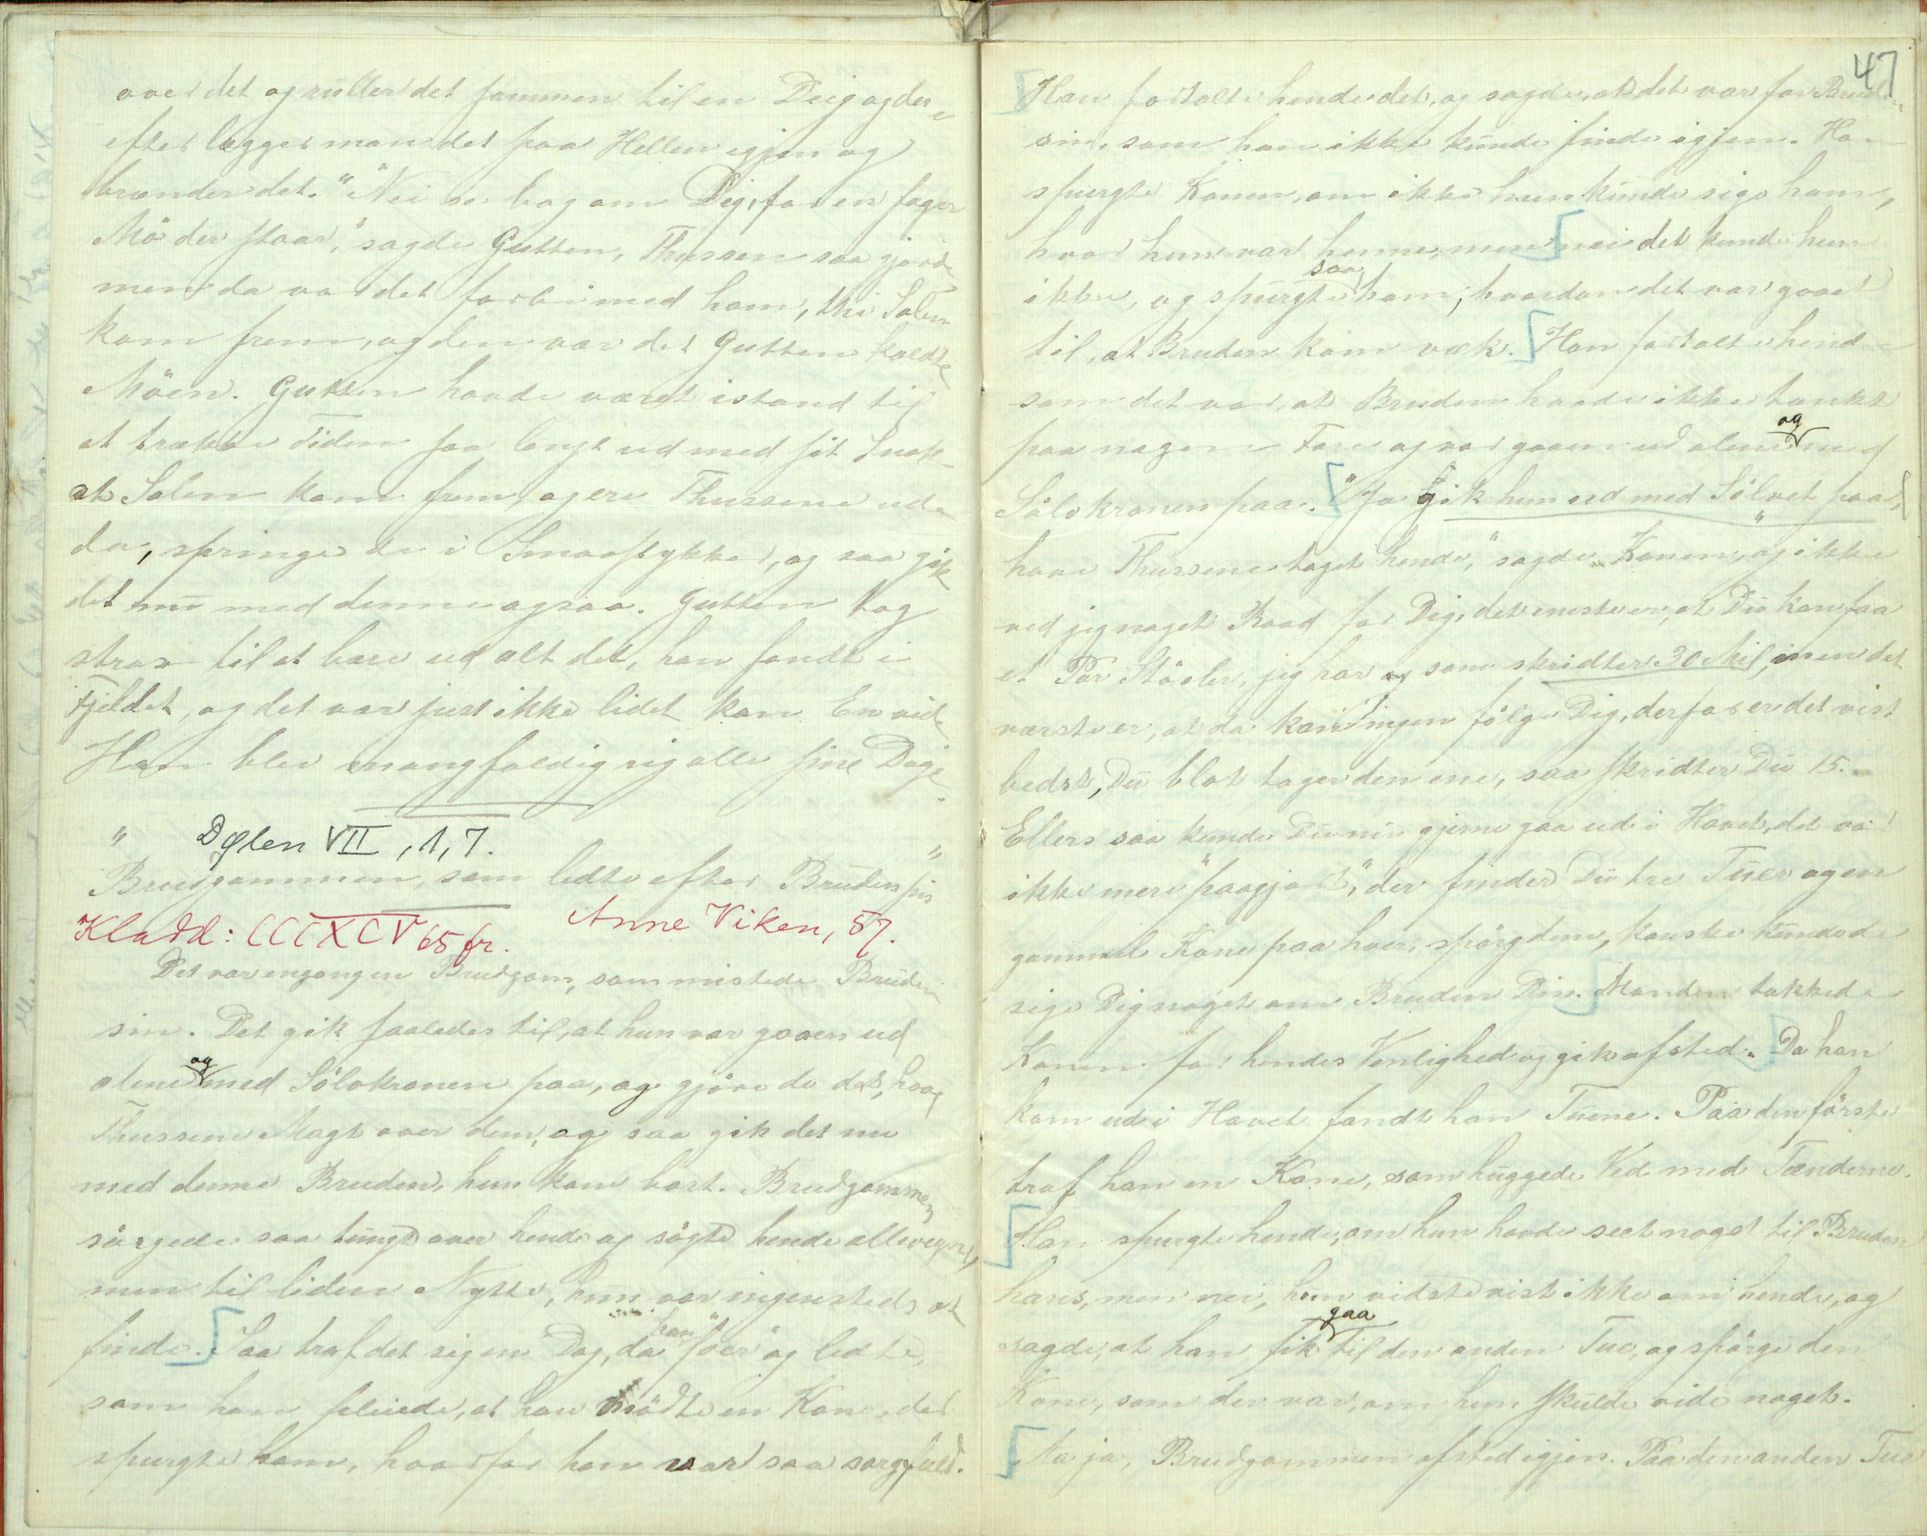 over det og ruller det sammen til en Deig og der-
efter lægger man det paa Hellen igjen og
brænder det." "Nei se bag om Dig, for en fager
Mö der staar," sagde Gutten, Thussen saa gjorde
men da var det forbi med ham, thi Solen
kom frem, og den var det Gutten kaldte
Möen. Gutten havde været istand til
at trække Tiden saa langt ud med sit Snak
at Solen kom frem, og ere Thussene ude
da, springe de i Smaastykker, og saa gik
det nu med denne ogsaa. Gutten tog
strax til at bære ud alt det, han fandt i
Fjeldet, og det var just ikke lidet kan En vide
Han blev mangfoldig rig alle sine Dage.
" Dølen VII, 1, 7.
Brudgommen, som ledte efter Bruden sin "
Kladd: CCCXCV 65 fr. Anne Viken, 57.
Det var engang en Brudgom, som mistede Bruden
sin. Det gik saaledes til, at hun var gaaen ud
alene og med Sölvkronen paa, og gjöre de det, have
Thussene Magt over dem, og saa gik det nu
med denne Bruden, hun kom bort. Brudgommen
sörgede saa tungt over hende og sögte hende allevegne,
men til liden Nytte, hun var ingensteds at
finde. Saa traf det sig en Dag, da han "foer" og ledte,
som han pleiede, at han mödte en Kone, der
spurgte ham, hvorfor han var saa sorgfuld.
47
Han fortalte hende det, og sagde, at det var for Bruden
sin, som han ikke kunde finde igjen. Han
spurgte Konen, om ikke hun kunde sige ham,
hvor hun var henne, men nei det kunde hun
ikke, og spurgte saa ham, hvordan det var gaaet
til, at Bruden kom væk. Han fortalte hende
som det var, at Bruden havde ikke tænkt
paa nogen Fare og var gaaen ud alene og med
Sölvkronen paa. "Ja gik hun ud med Sölvet paa,
have Thussene taget hende," sagde Konen, "og ikke
ved jeg noget Raad for Dig, det eneste er, at Du kan faa
et Par Stövler, jeg har og som skridter 30 Mil, men det
værste er, at da kan ingen fölge Dig, derfor er det vist
bedst, Du blot tager den ene, saa skridter Du 15.
Ellers saa kunde Du nu gjerne gaa ud i Havet, det var
ikke mere "paagjort", der finder Du tre Tuer og en
gammel Kone paa hver, spörg dem, kanske kunde de
sige Dig noget om Bruden Din. Manden takkede
Konen for hendes Venlighed og gik afsted. Da han
kom ud i Havet fandt han Tuene. Paa den förste
traf han en Kone, som huggede Ved med Tænderne.
Han spurgte hende, om hun havde seet noget til Bruden
hans, men nei, hun vidste vist ikke om hende, og
sagde, at han fik gaa til den anden Tue, og spörge den
Kone, som der var, om hun skulde vide noget.
Na ja, Brudgommen afsted igjen. Paa den anden Tue